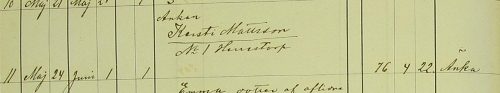 10 Maj 21 Maj 2
Ankan
Kersti Mattsson
No 1 Herrestorp
11 Maj 24 Juni 1 1 76 4 22 Änka
Emma dotter af aflidne